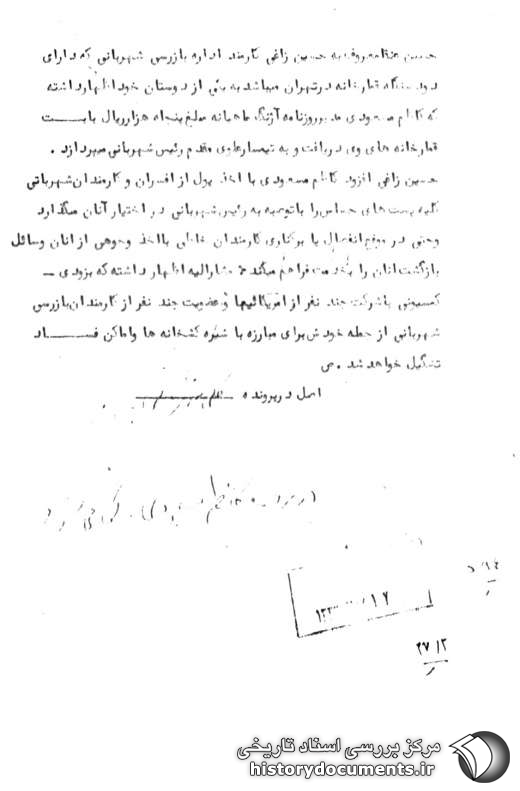 حسین معروف به حسین زاغی کارمند اداره بازرسی شهربانی که دارای
دودستگاه قمارخانه درتهران میباشد به یکی از دوستان خود اظهارداشته
که کاظم مسعودی مدیرروزنامه آژنگ ماهیانه مبلغ پنجاه هزارریال بابـــت
قمارخانه های وی دریافت و به تیمسارعلوی مقدم رئیس شهربانی میپردازد .
حسین زاغی افزود کاظم مسعودی با اخذ پول از افسران و کارمندان شهربانی
کلیه پست های حساس را باتوصیه به رئیس شهربانی در اختیار آنان میگذارد
وحتی در موقع انفصال یا برکناری کارمندان خاطی بااخذ وجوهی از آنان وسائل
بازگشت آنان را بخدمت فراهم میکند مشارالیه اظهار داشته که بزودی ـ
کمیسیونی باشرکت چند نفر از آمریکائیها و عضویت چند نفر از کارمندان بازرسی
شهربانی از جمله خودش برای مبارزه با شیره کشخانه ها واماکن فســـاد
تشکیل خواهد شد . ص
اصل در پرونده
در پرونده کاظم مسعودی
۱۶
۲۷/۲
مرکز بررسی اسناد تاریخی
historydocuments.ir